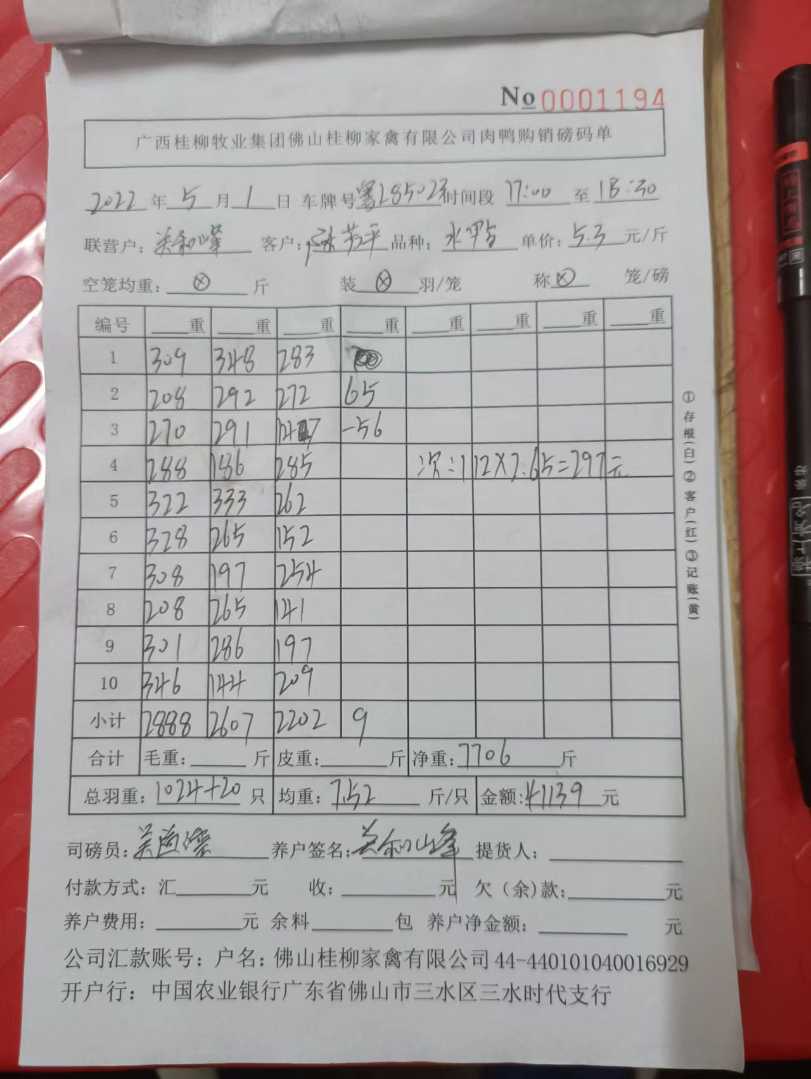 No 0001194
广西桂柳牧业集团佛山桂柳家禽有限公司肉鸭购销磅码单
2022年5月1日 车牌号粤285023时间段 17:00 至 18:30
联营户: 客户: 品种: 水鸭 单价: 5.3 元/斤
空笼均重: ⊗ 斤 装 ⊗ 羽/笼 称 ⊗ 笼/磅
编号 重 重 重 重 重 重 重 重
1 309 348 283
2 208 292 272 65
3 270 291 -56
4 288 186 285 次:112×2.65=297元
5 322 333 262
6 328 265 152
7 308 197 254
8 208 265 141
9 301 286 197
10 346 144 209
小计 2888 2607 2202 9
合计 毛重: 斤 皮重: 斤 净重: 7706 斤
总羽重: 1024+20 只 均重: 7.52 斤/只 金额: 41139 元
司磅员: 养户签名: 提货人:
付款方式: 汇 元 收: 元 欠(余)款: 元
养户费用: 元 余料 包 养户净金额: 元
公司汇款账号: 户名: 佛山桂柳家禽有限公司 44-440101040016929
开户行: 中国农业银行广东省佛山市三水区三水时代支行
①存根(白)②客户(红)③记账(黄)